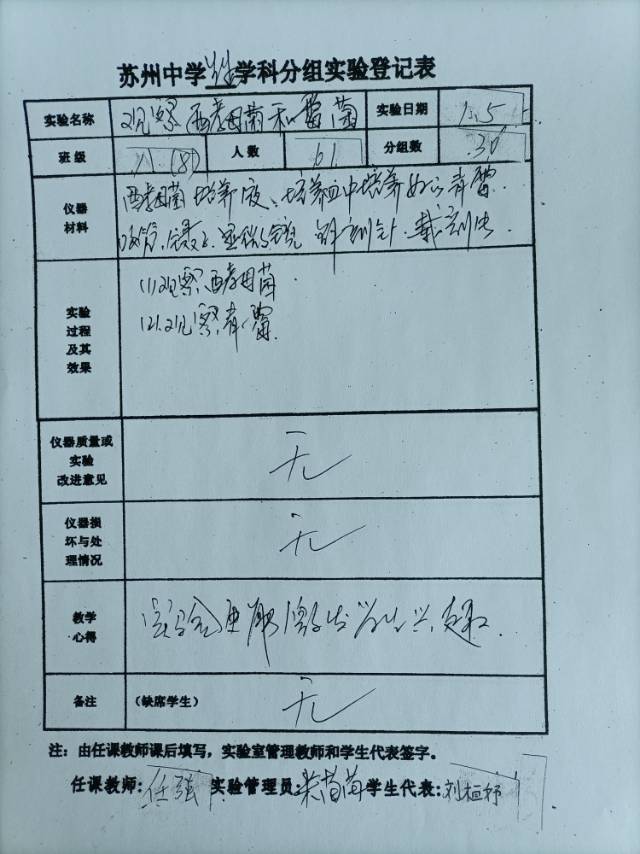 苏州中学生物学科分组实验登记表
实验名称 观察酵母菌和霉菌 实验日期
班级 八(8) 人数 61 分组数 30
仪器材料 酵母菌培养液、培养皿中培养好的青霉.
显微镜 解剖针.载玻片
实验过程及其效果 (1)观察酵母菌
(2).观察青霉.
仪器质量或实验改进意见 无
仪器损坏与处理情况 无
教学心得 实验更能激发学生兴趣.
备注 (缺席学生) 无
注：由任课教师课后填写，实验室管理教师和学生代表签字。
任课教师: 任强 实验管理员: 学生代表: